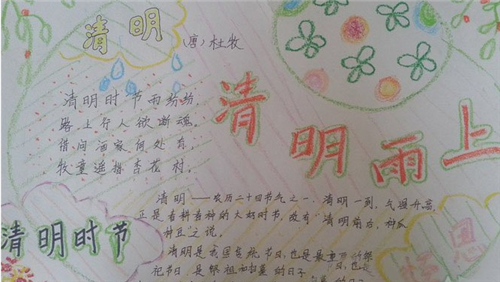 清明
(唐)杜牧
清明时节雨纷纷,
路上行人欲断魂。
借问酒家何处有
牧童遥指杏花村。
清明雨上
清明时节
清明——农历二十四节气之一,清明一到,气温升高,
正是春耕春种的大好时节,故有"清明前后,种瓜
种豆"之说。
清明是我国传统节日,也是最重要的祭
祀节日,是祭祖和扫墓的日子